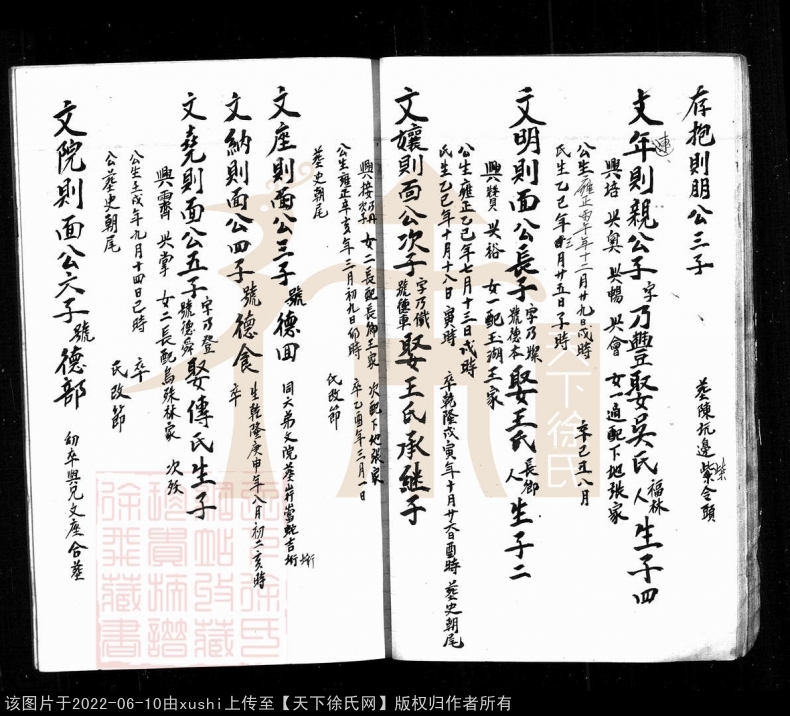 存抱則朋公三子
葬陳坑邊紫令頭
文年則親公子字乃豐娶吳氏福林人生子四
連
興培 興奧 興暢 興會 女一適配下地張家
公生雍正丙午年十二月廿九日戌時
氏生乙巳年三月廿五日子時 卒己丑八月
文明則面公長子字乃燦號德本娶王氏長鄉人生子二
興贊 興裕 女一配玉湖王家
公生雍正乙巳年七月十三日戌時
氏生乙巳年十月十八日寅時 卒乾隆戊寅年十月廿六日酉時 葬史朝尾
文孃則面公次子字乃儀號德車娶王氏承繼子
興接乃丹次子 女二長配長鄉王家 次配下地張家
公生雍正辛亥年二月初九日卯時 卒乙酉年三月一日
葬史朝尾 氏改節
文座則面公三子號德回 同六弟文院葬山行當蛇吉垳
文納則面公四子號德食 生乾隆庚申年八月初二亥時
卒
文堯則面公五子字乃登號德舜娶傅氏生子
興霽 興掌 女二長配烏珠林家 次殀
公生壬戌年九月十四日己時 卒
公葬史朝尾 氏改節
文院則面公六子號德部 幼卒與兄文座合葬
天下徐氏
该图片于2022-06-10由xushi上传至【天下徐氏网】版权归作者所有